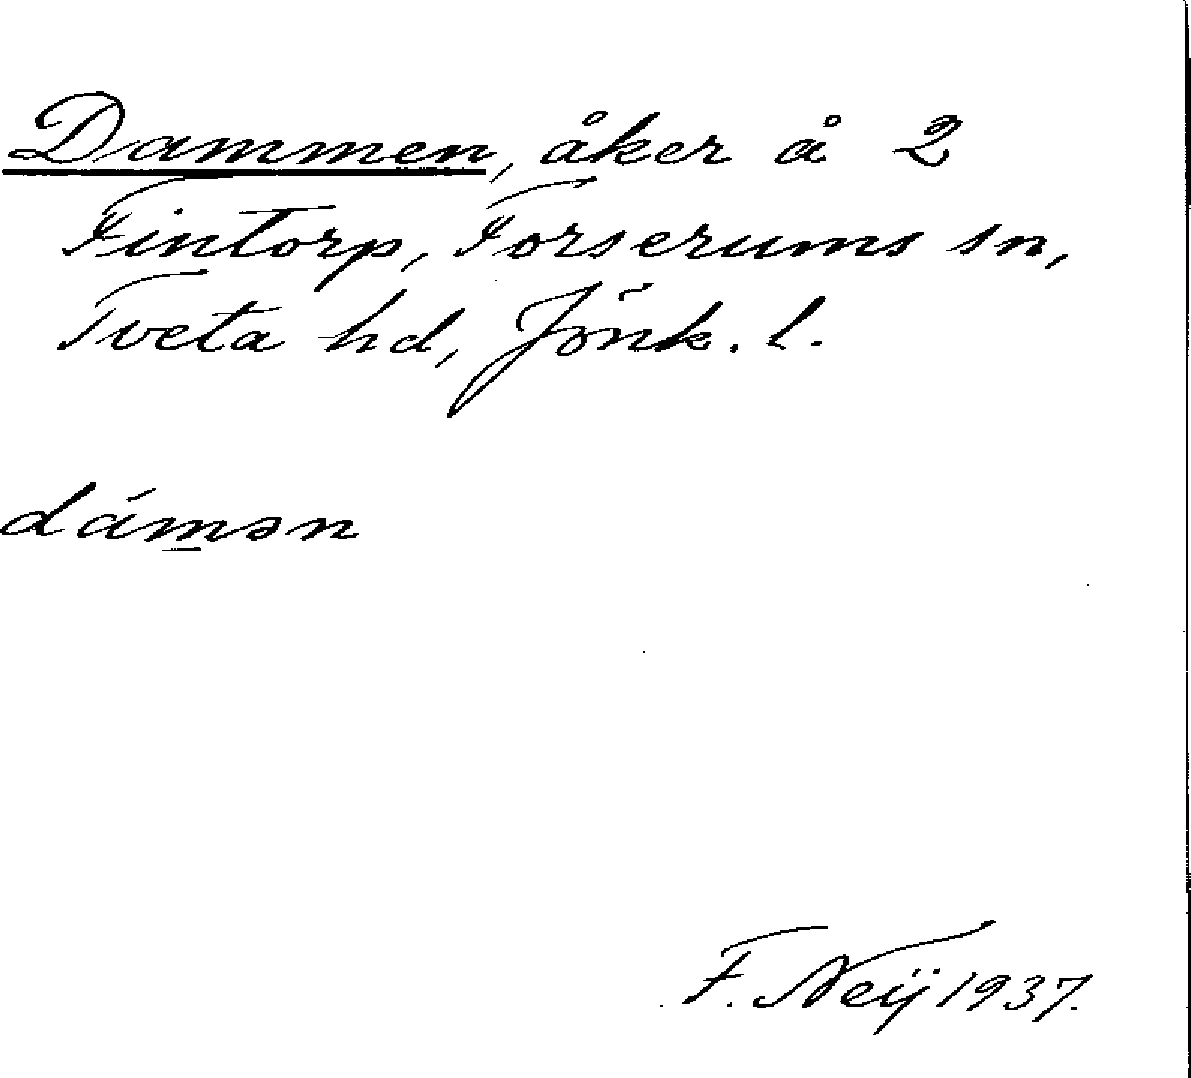 Dammen, åker å 2
Fintorp, Forserums sn,
Tveta hd, Jönk. l.
dám̲ən
F. Neij 1937.